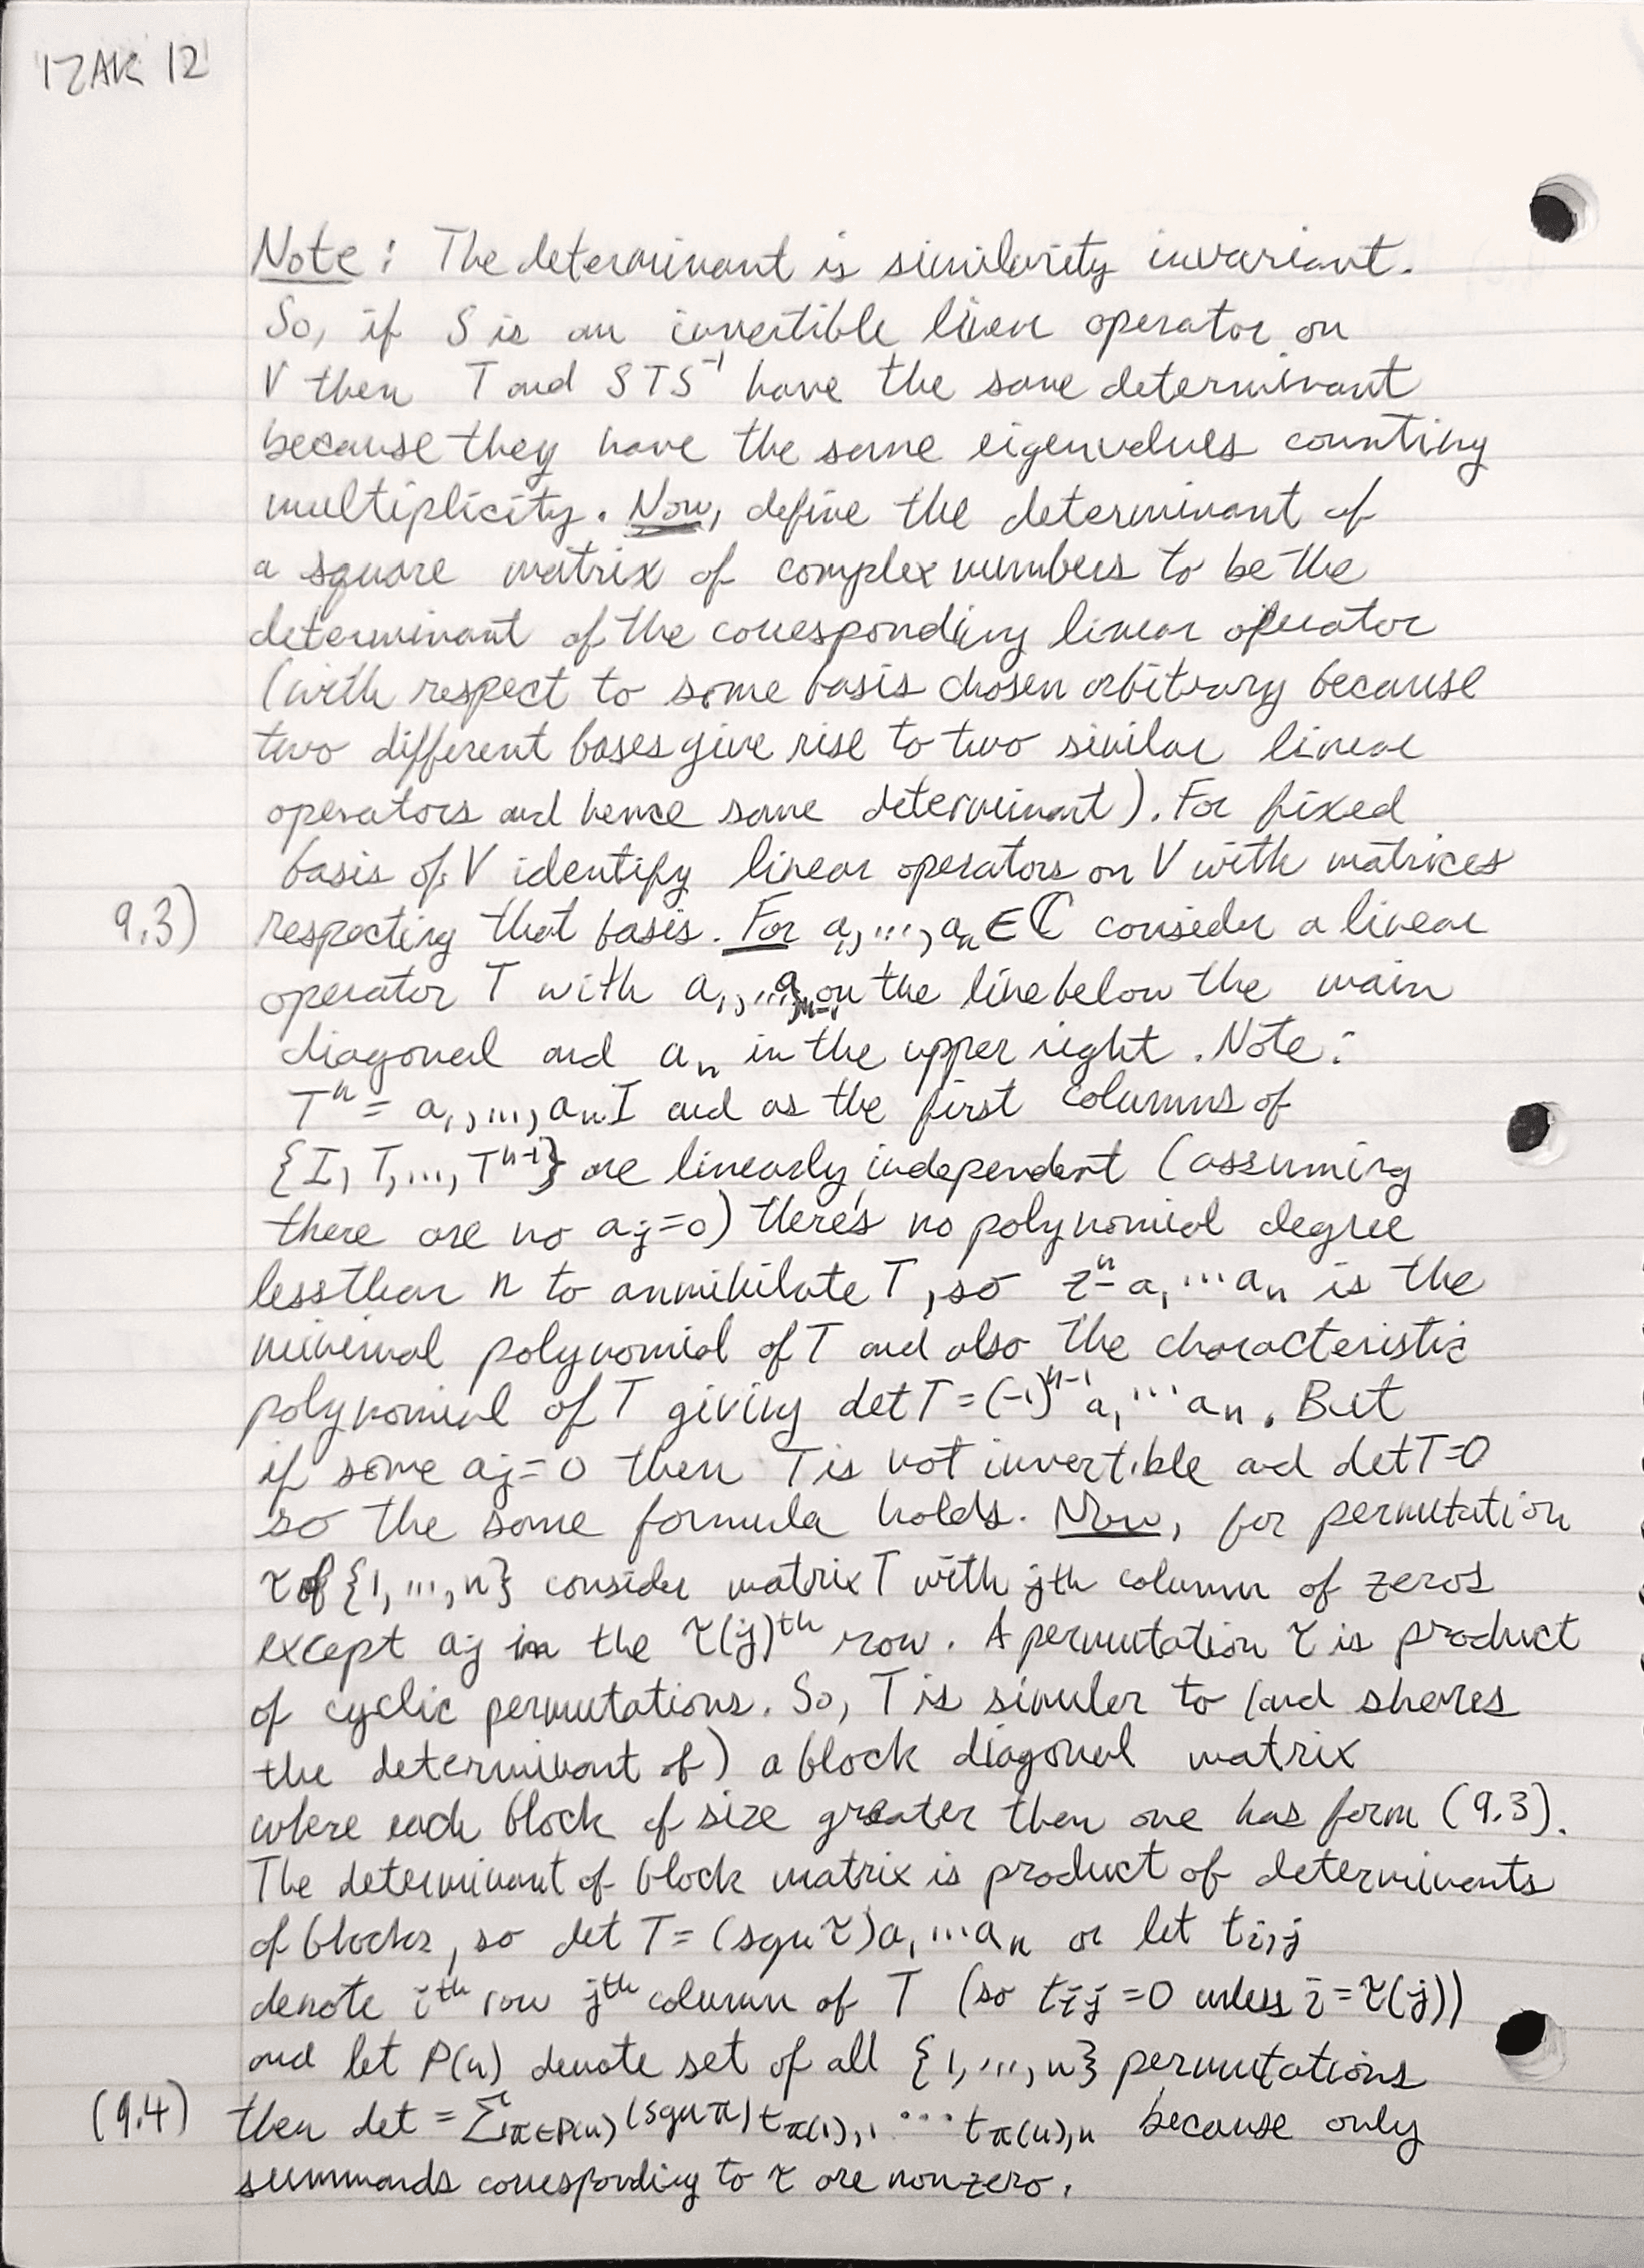 IZAK 12
Note: The determinant is similarity invariant.
So, if S is an invertible linear operator on
V then T and STS⁻¹ have the same determinant
because they have the same eigenvalues counting
multiplicity. Now, define the determinant of
a square matrix of complex numbers to be the
determinant of the corresponding linear operator
(with respect to some basis chosen arbitrary because
two different bases give rise to two similar linear
operators and hence same determinant). For fixed
basis of V identify linear operators on V with matrices
9.3) respecting that basis. For a₁,...,aₙ∈ℂ consider a linear
operator T with a₁,...,aₙ₋₁ on the line below the main
diagonal and aₙ in the upper right. Note:
Tⁿ = a₁,...,aₙI and as the first columns of
{I, T,..., Tⁿ⁻¹} are linearly independent (assuming
there are no aⱼ=0) there's no polynomial degree
less than n to annihilate T, so zⁿ-a₁...aₙ is the
minimal polynomial of T and also the characteristic
polynomial of T giving det T = (-1)ⁿ⁻¹a₁...aₙ. But
if some aⱼ=0 then T is not invertible and det T=0
so the same formula holds. Now, for permutation
τ of {1,...,n} consider matrix T with jth column of zeros
except aⱼ in the τ(j)ᵗʰ row. A permutation τ is product
of cyclic permutations. So, T is similar to (and shares
the determinant of) a block diagonal matrix
where each block of size greater than one has form (9.3).
The determinant of block matrix is product of determinants
of blocks, so det T = (sgn τ)a₁...aₙ or let tᵢ,ⱼ
denote iᵗʰ row jᵗʰ column of T (so tᵢⱼ=0 unless i=τ(j))
and let P(n) denote set of all {1,...,n} permutations
(9.4) then det = Σπ∈P(n) (sgn π) t_π(1),1 ... t_π(n),n because only
summands corresponding to τ are nonzero.